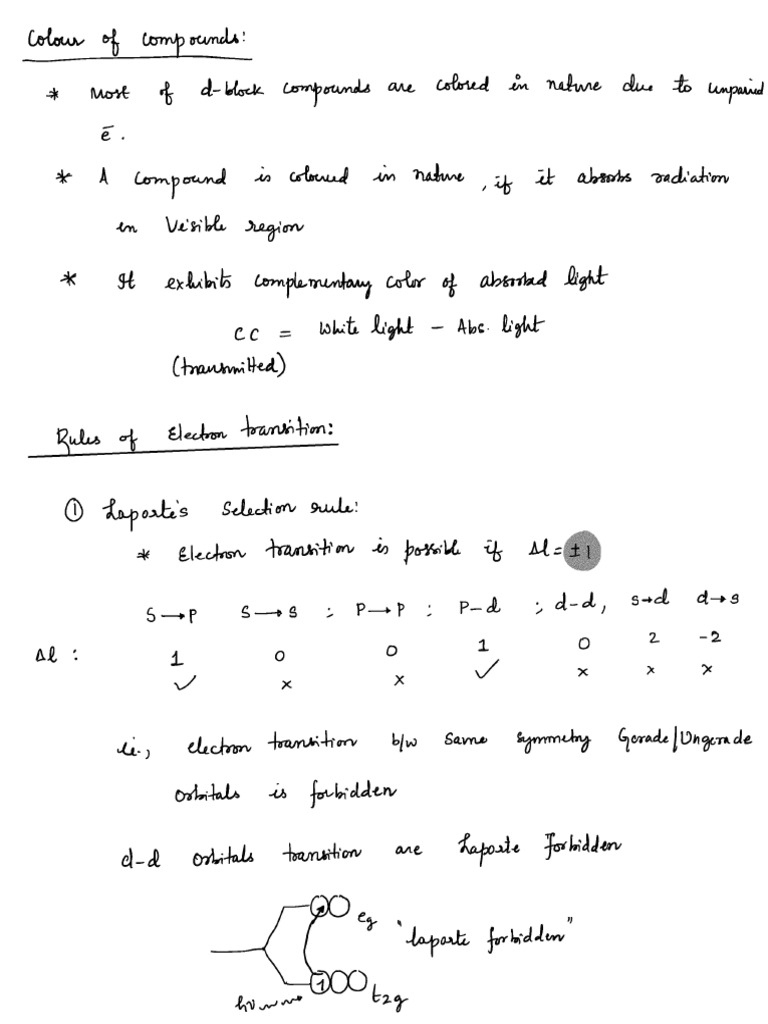 Colour of compounds:
* Most of d-block compounds are colored in nature due to unpaired
ē.
* A compound is coloured in nature, if it absorbs radiation
in Visible region
* It exhibits complementary color of absorbed light
CC = White light - Abs. light
(transmitted)
Rules of Electron transition:
① Laporte's Selection rule:
* Electron transition is possible if Δl = ±1
S→P S→S ; P→P ; P-d ; d-d, s→d d→s
Δl : 1 0 0 1 0 2 -2
✓ × × ✓ × × ×
i.e., electron transition b/w same symmetry Gerade/Ungerade
orbitals is forbidden
d-d orbitals transition are Laporte Forbidden
eg
"laporte forbidden"
1
hν
t2g